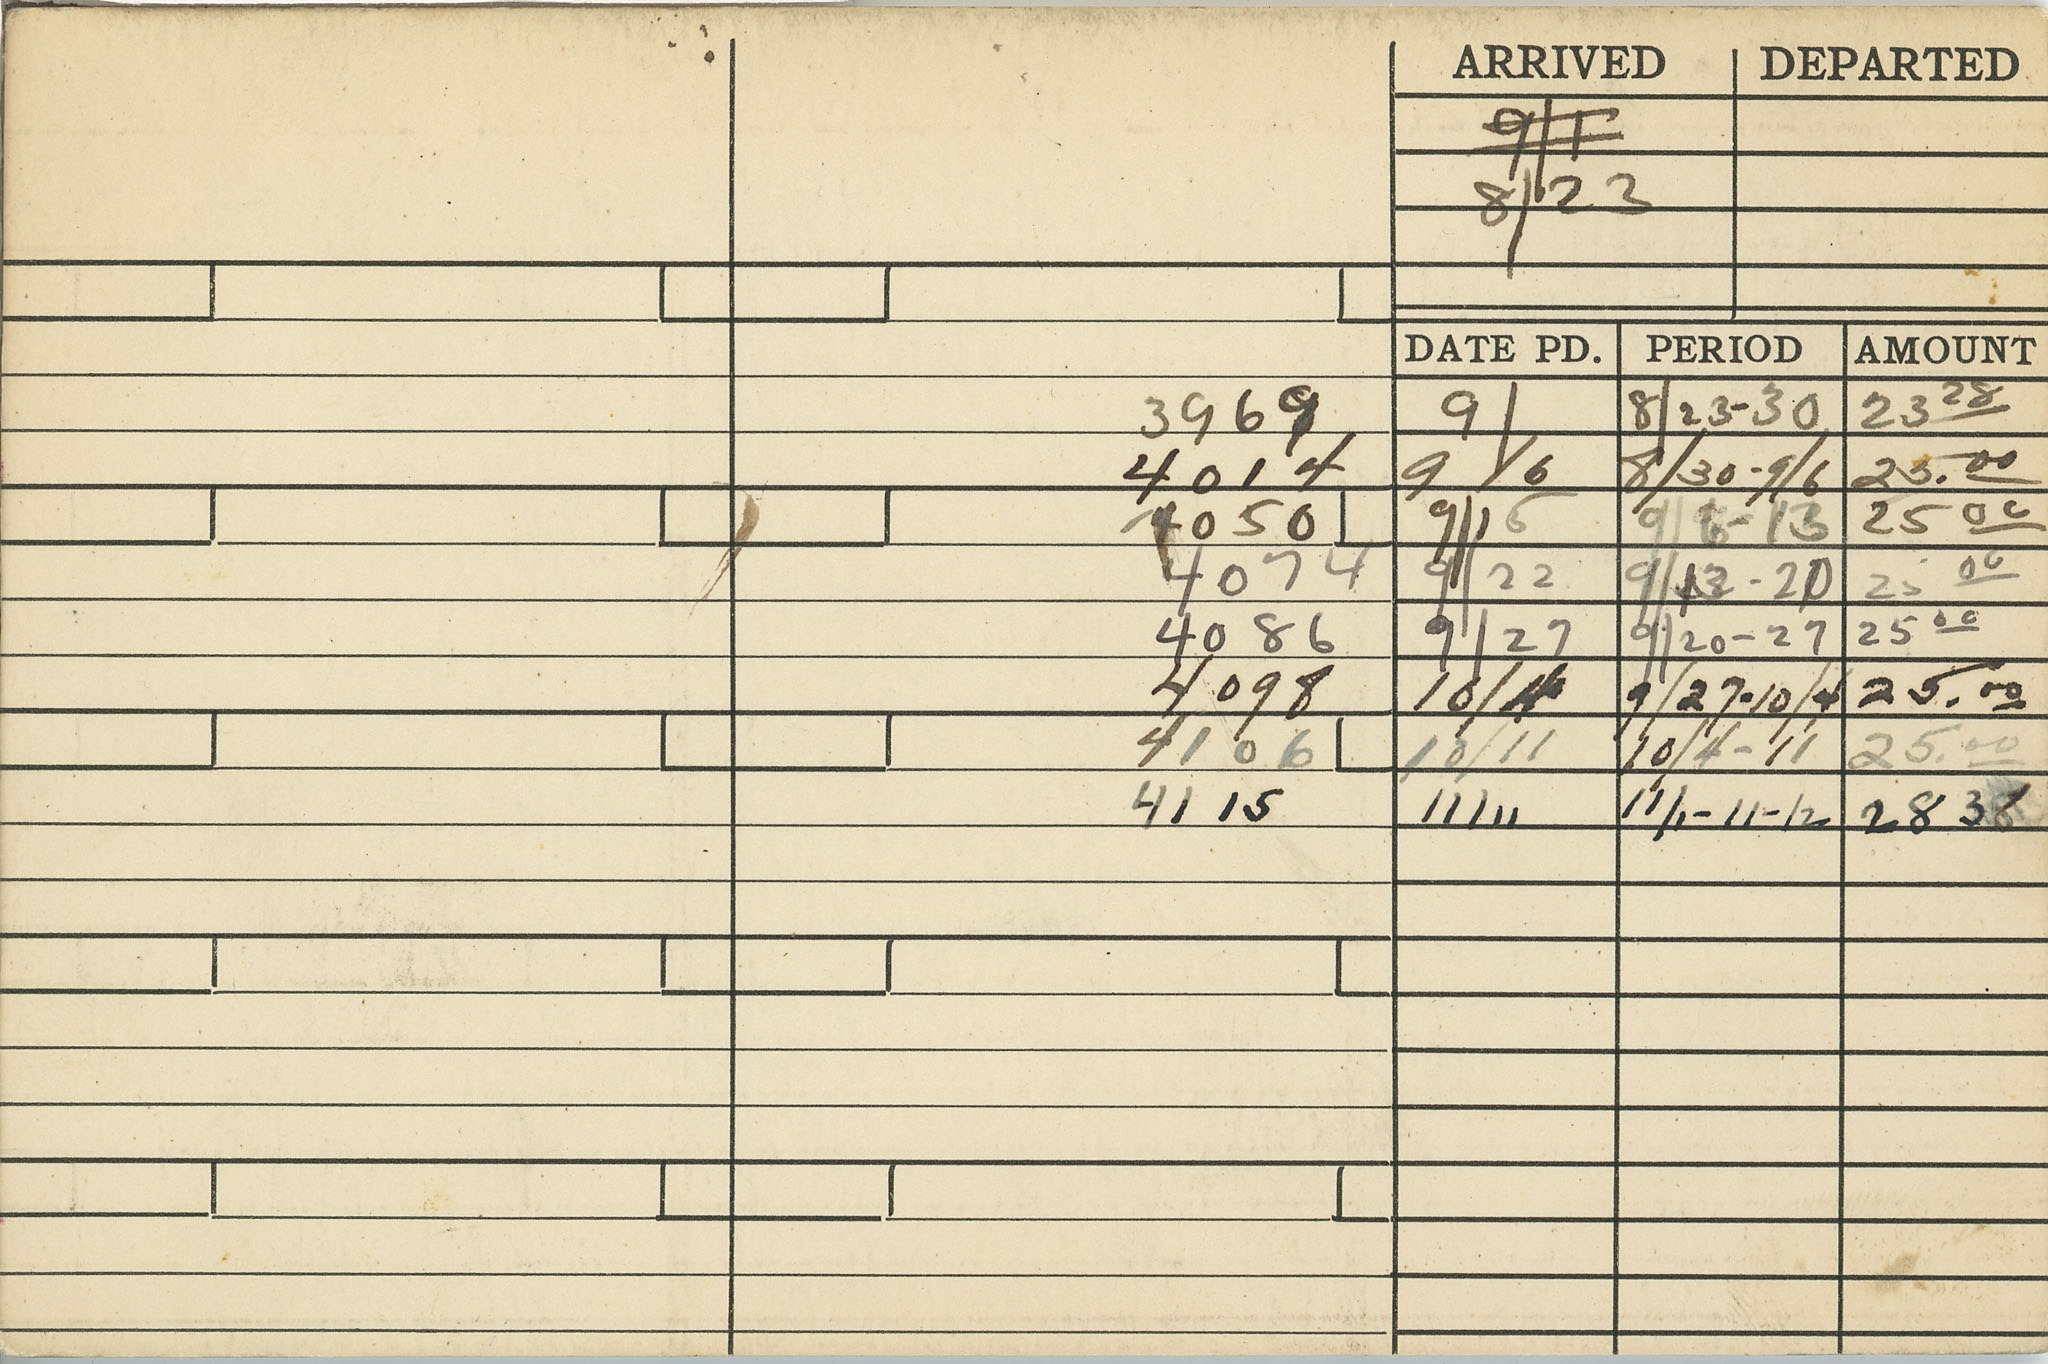 ARRIVED DEPARTED
9/1
8/23
DATE PD. PERIOD AMOUNT
3969 9/ 8/23-30 23 28
4014 9/6 8/30-9/6 25.00
4050 9/15 9/6-13 25 00
4074 9/22 9/13-20 25 00
4086 9/27 9/20-27 25 00
4098 10/4 9/27-10/4 25.00
4106 10/11 10/4-11 25.00
4115 11/11 11/1-11-12 28 38